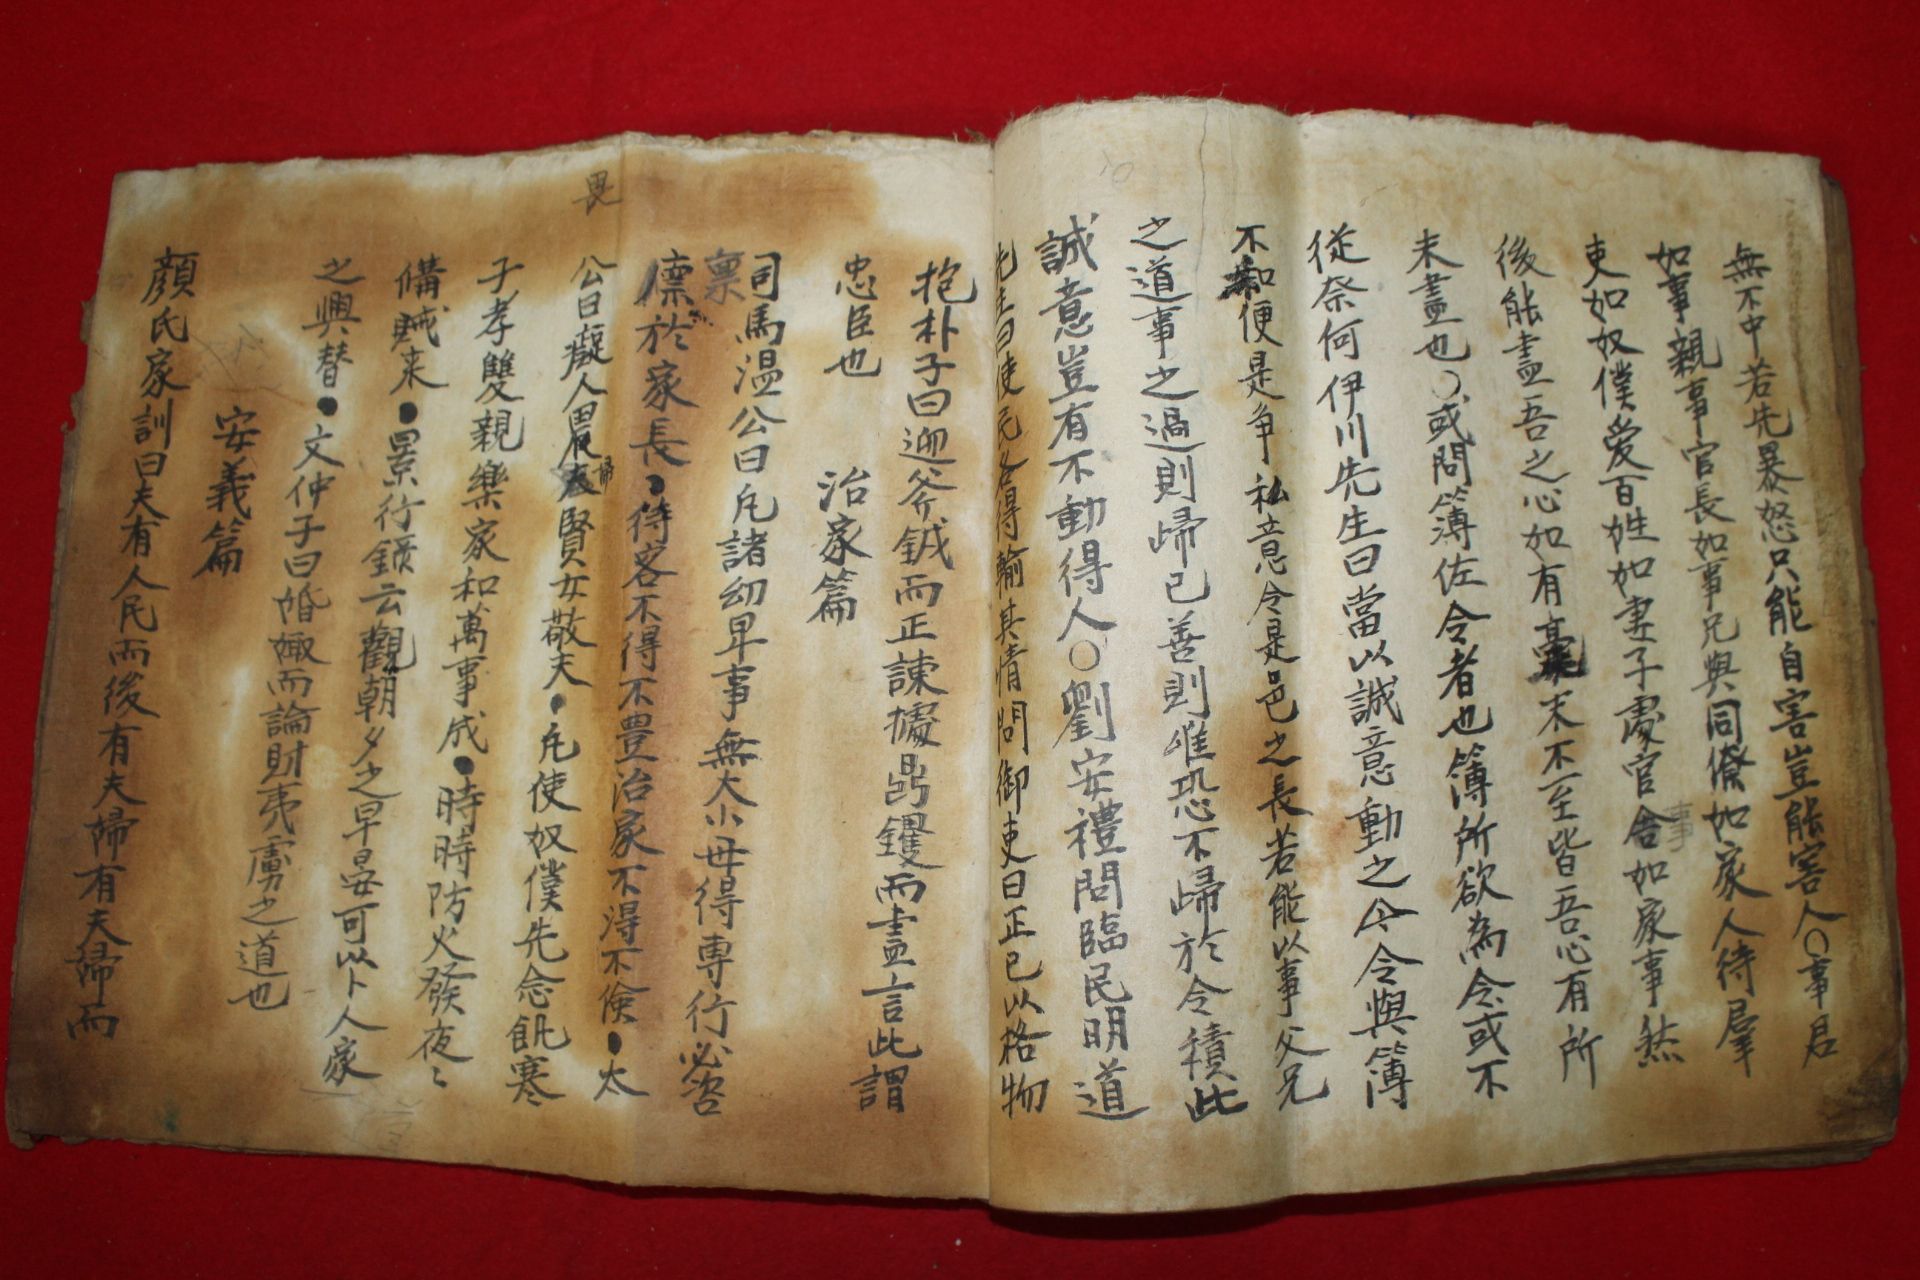 無不中若先暴怒只能自害豈能害人○事君
如事親事官長如事兄與同僚如家人待羣
吏如奴僕愛百姓如妻子處官舍如家事然
事
後能盡吾之心如有毫末不至皆吾心有所
未盡也○或問簿佐令者也簿所欲為令或不
從奈何伊川先生曰當以誠意動之今令與簿
不和便是争私意令是邑之長若能以事父兄
之道事之過則歸己善則唯恐不歸於令積此
誠意豈有不動得人○劉安禮問臨民明道
先生曰使民各得輸其情問御吏曰正己以格物
抱朴子曰迎斧鉞而正諫據鼎鑊而盡言此謂
忠臣也
治家篇
司馬温公曰凢諸幼卑事無大小毋得専行必咨
稟
於家長●待客不得不豊治家不得不儉●太
畏
公曰癡人畏婦賢女敬夫●凢使奴僕先念飢寒
子孝雙親樂家和萬事成●時時防火發夜々
備賊来●景行錄云觀朝夕之早晏可以卜人家
之興替●文仲子曰婚娵而論財夷虜之道也
安義篇
顔氏家訓曰夫有人民而後有夫婦有夫婦而